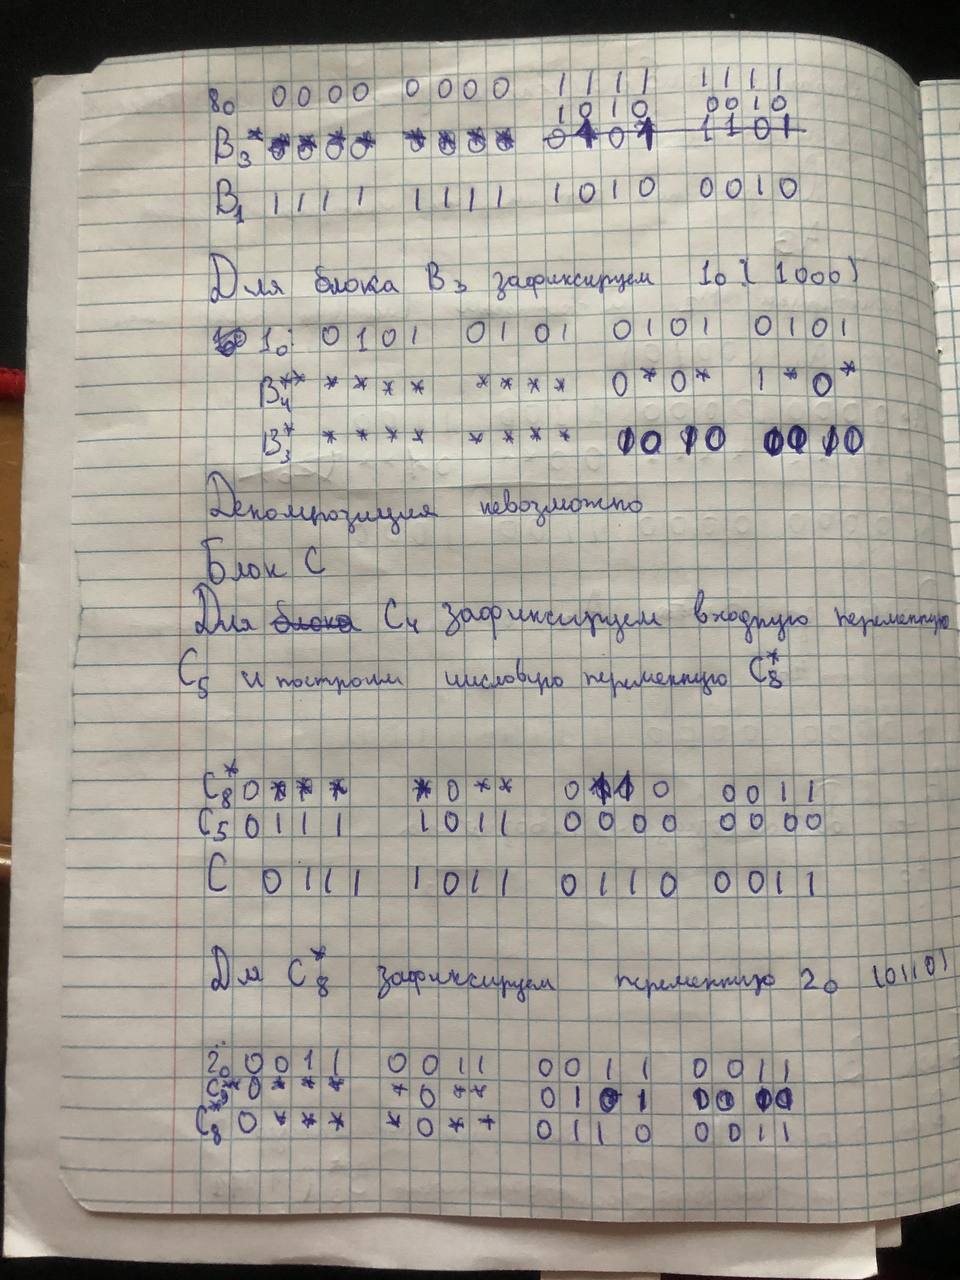 8₀ 0000 0000 1111 1111
1010 0010
B₃* **** **** 0101 1101
B₁ 1111 1111 1010 0010
Для блока B₃ зафиксируем 1₀ (1000)
1₀: 0101 0101 0101 0101
B₄** **** **** 0*0* 1*0*
B₃* **** **** 1010 0010
Декомпозиция невозможно
Блок C
Для блока C₄ зафиксируем входную переменную
C₅ и построим числовую переменную C₈*
C₈* 0*** *0** 0110 0011
C₅ 0111 1011 0000 0000
C 0111 1011 0110 0011
Для C₈* зафиксируем переменную 2₀ (0110)
2₀: 0011 0011 0011 0011
0*** *0** 0101 0000
C₈* 0*** *0** 0110 0011